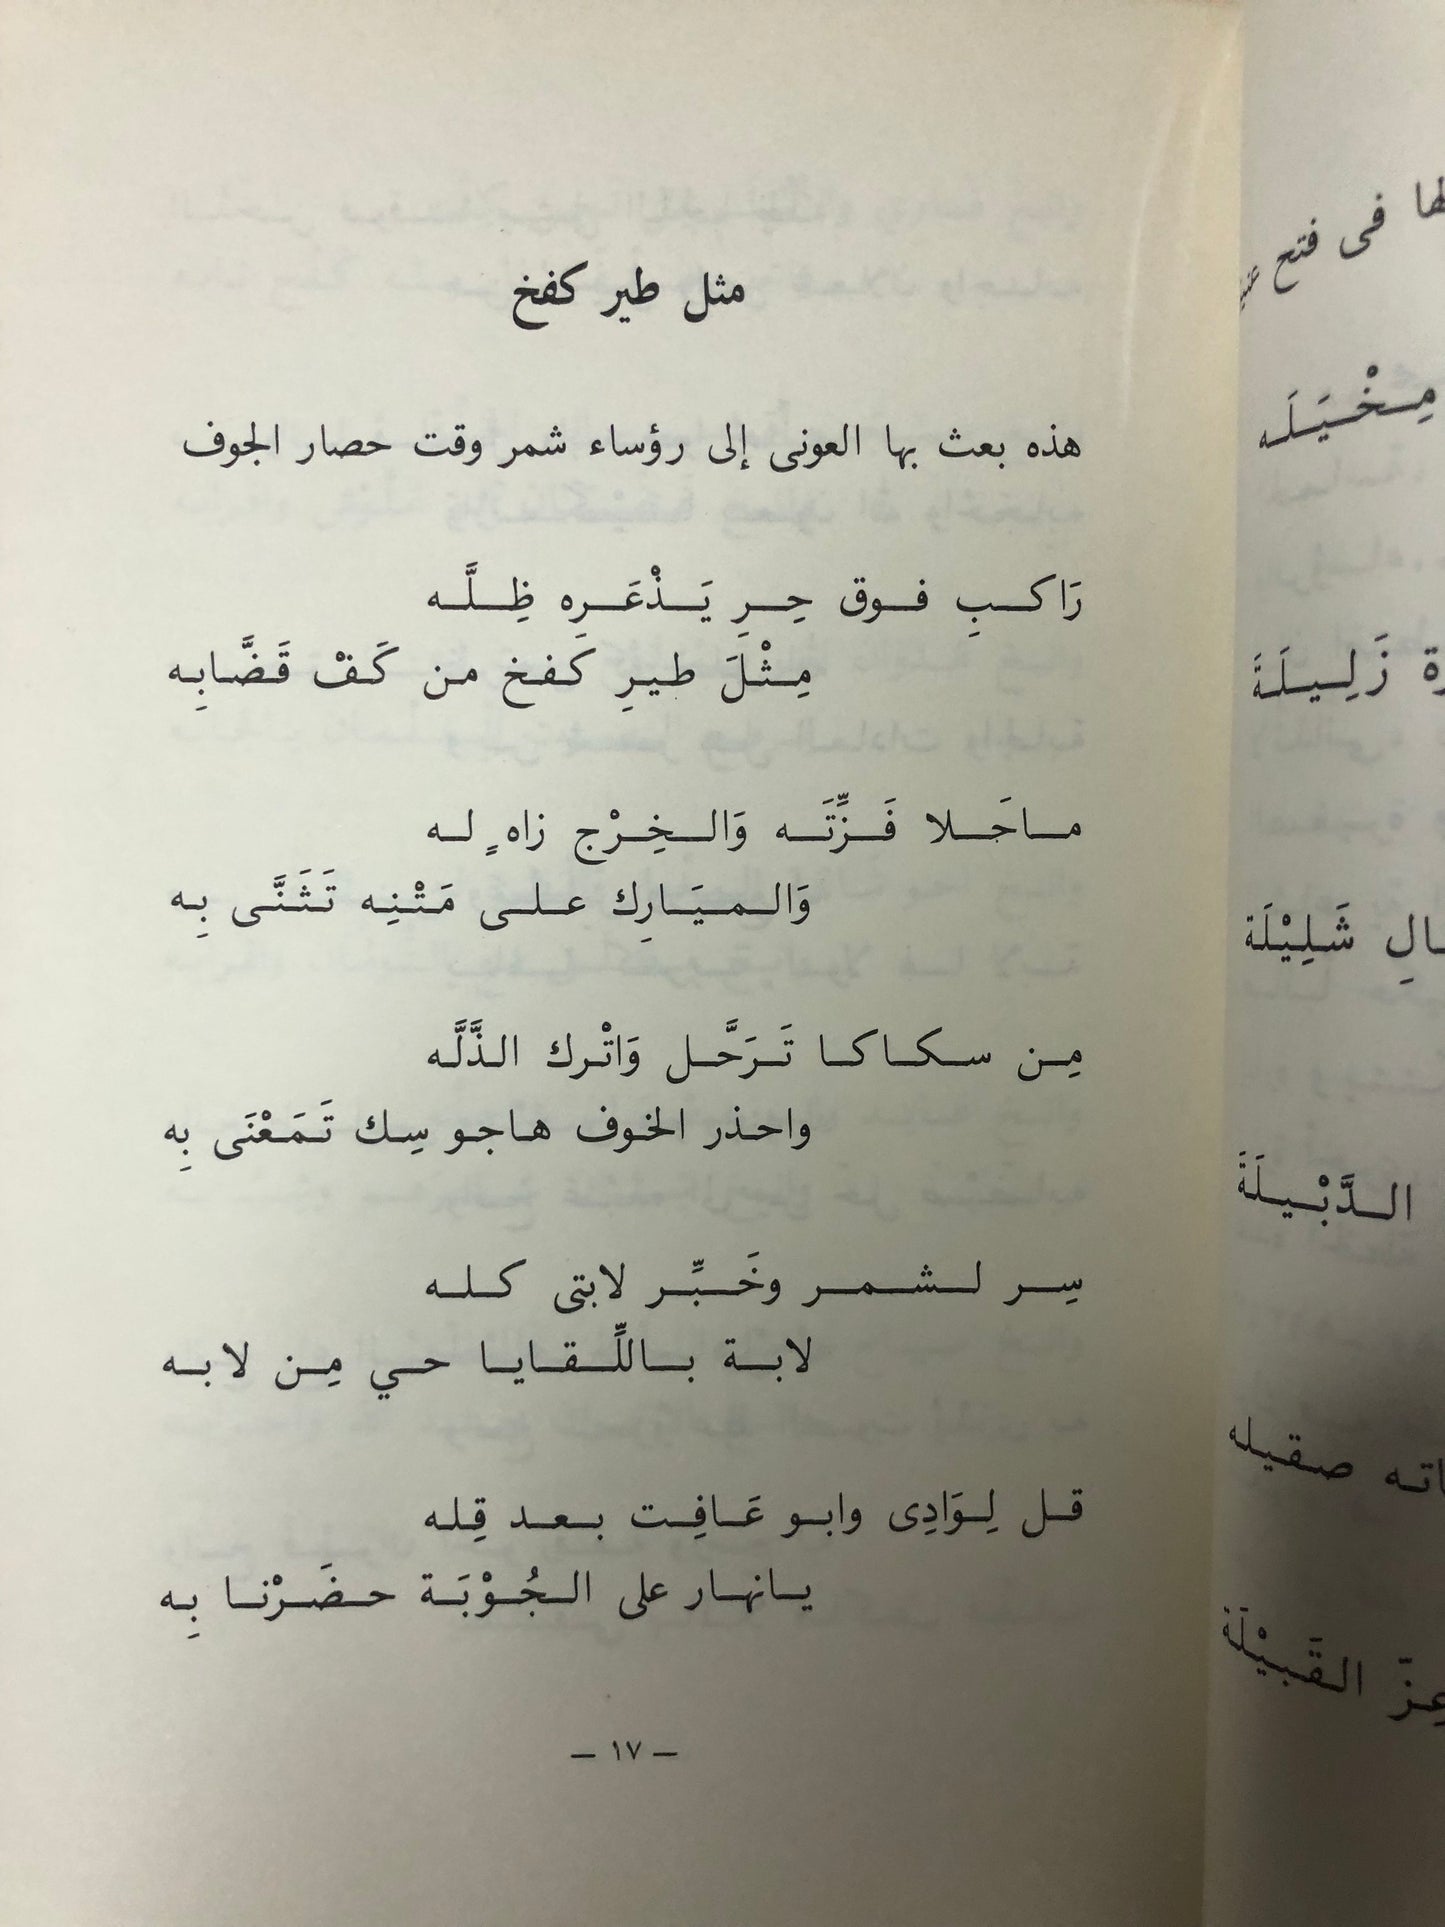 مثل طير كفخ
هذه بعث بها العونى إلى رؤساء شمر وقت حصار الجوف
رَاكبِ فوق حِرِ يَذْعَرِه ظِلَّه
مِثْلَ طيرِ كَفخ من كَفْ قَضَّابِه
ماحَلا فَزِّتَه وَالخِرْج زاهٍ له
وَالميَارِك على مَتْنِه تَثَنَّى بِه
مِن سكاكا تَرَحَّل وَاتْرك الذَّلَّه
واحذر الخوف هاجوسِك تَمَعْنَى بِه
سِر لشمر وخَبِّر لابتى كله
لابة باللِّقايا حي مِن لابه
قل لِوَادِى وابو عَافِت بعد قِله
يانهار على الجُوْبَة حضَرْنا بِه
– ١٧ –
فى فتح
مِخْيَلَه
زَلِيلَةَ
شَلِيْلَة
الدَّبْيلَةَ
صقيله
عِزّ القَبيْلَة